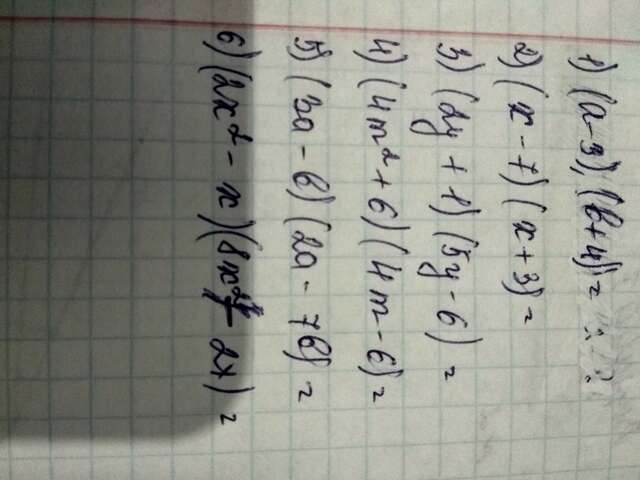 1) (a-3)(b+4)=
2) (x-7)(x+3)=
3) (2y+1)(5y-6)=
4) (4m²+6)(4m-6)=
5) (3a-b)(2a-7b)=
6) (2x²-x)(8x² - 2x)=